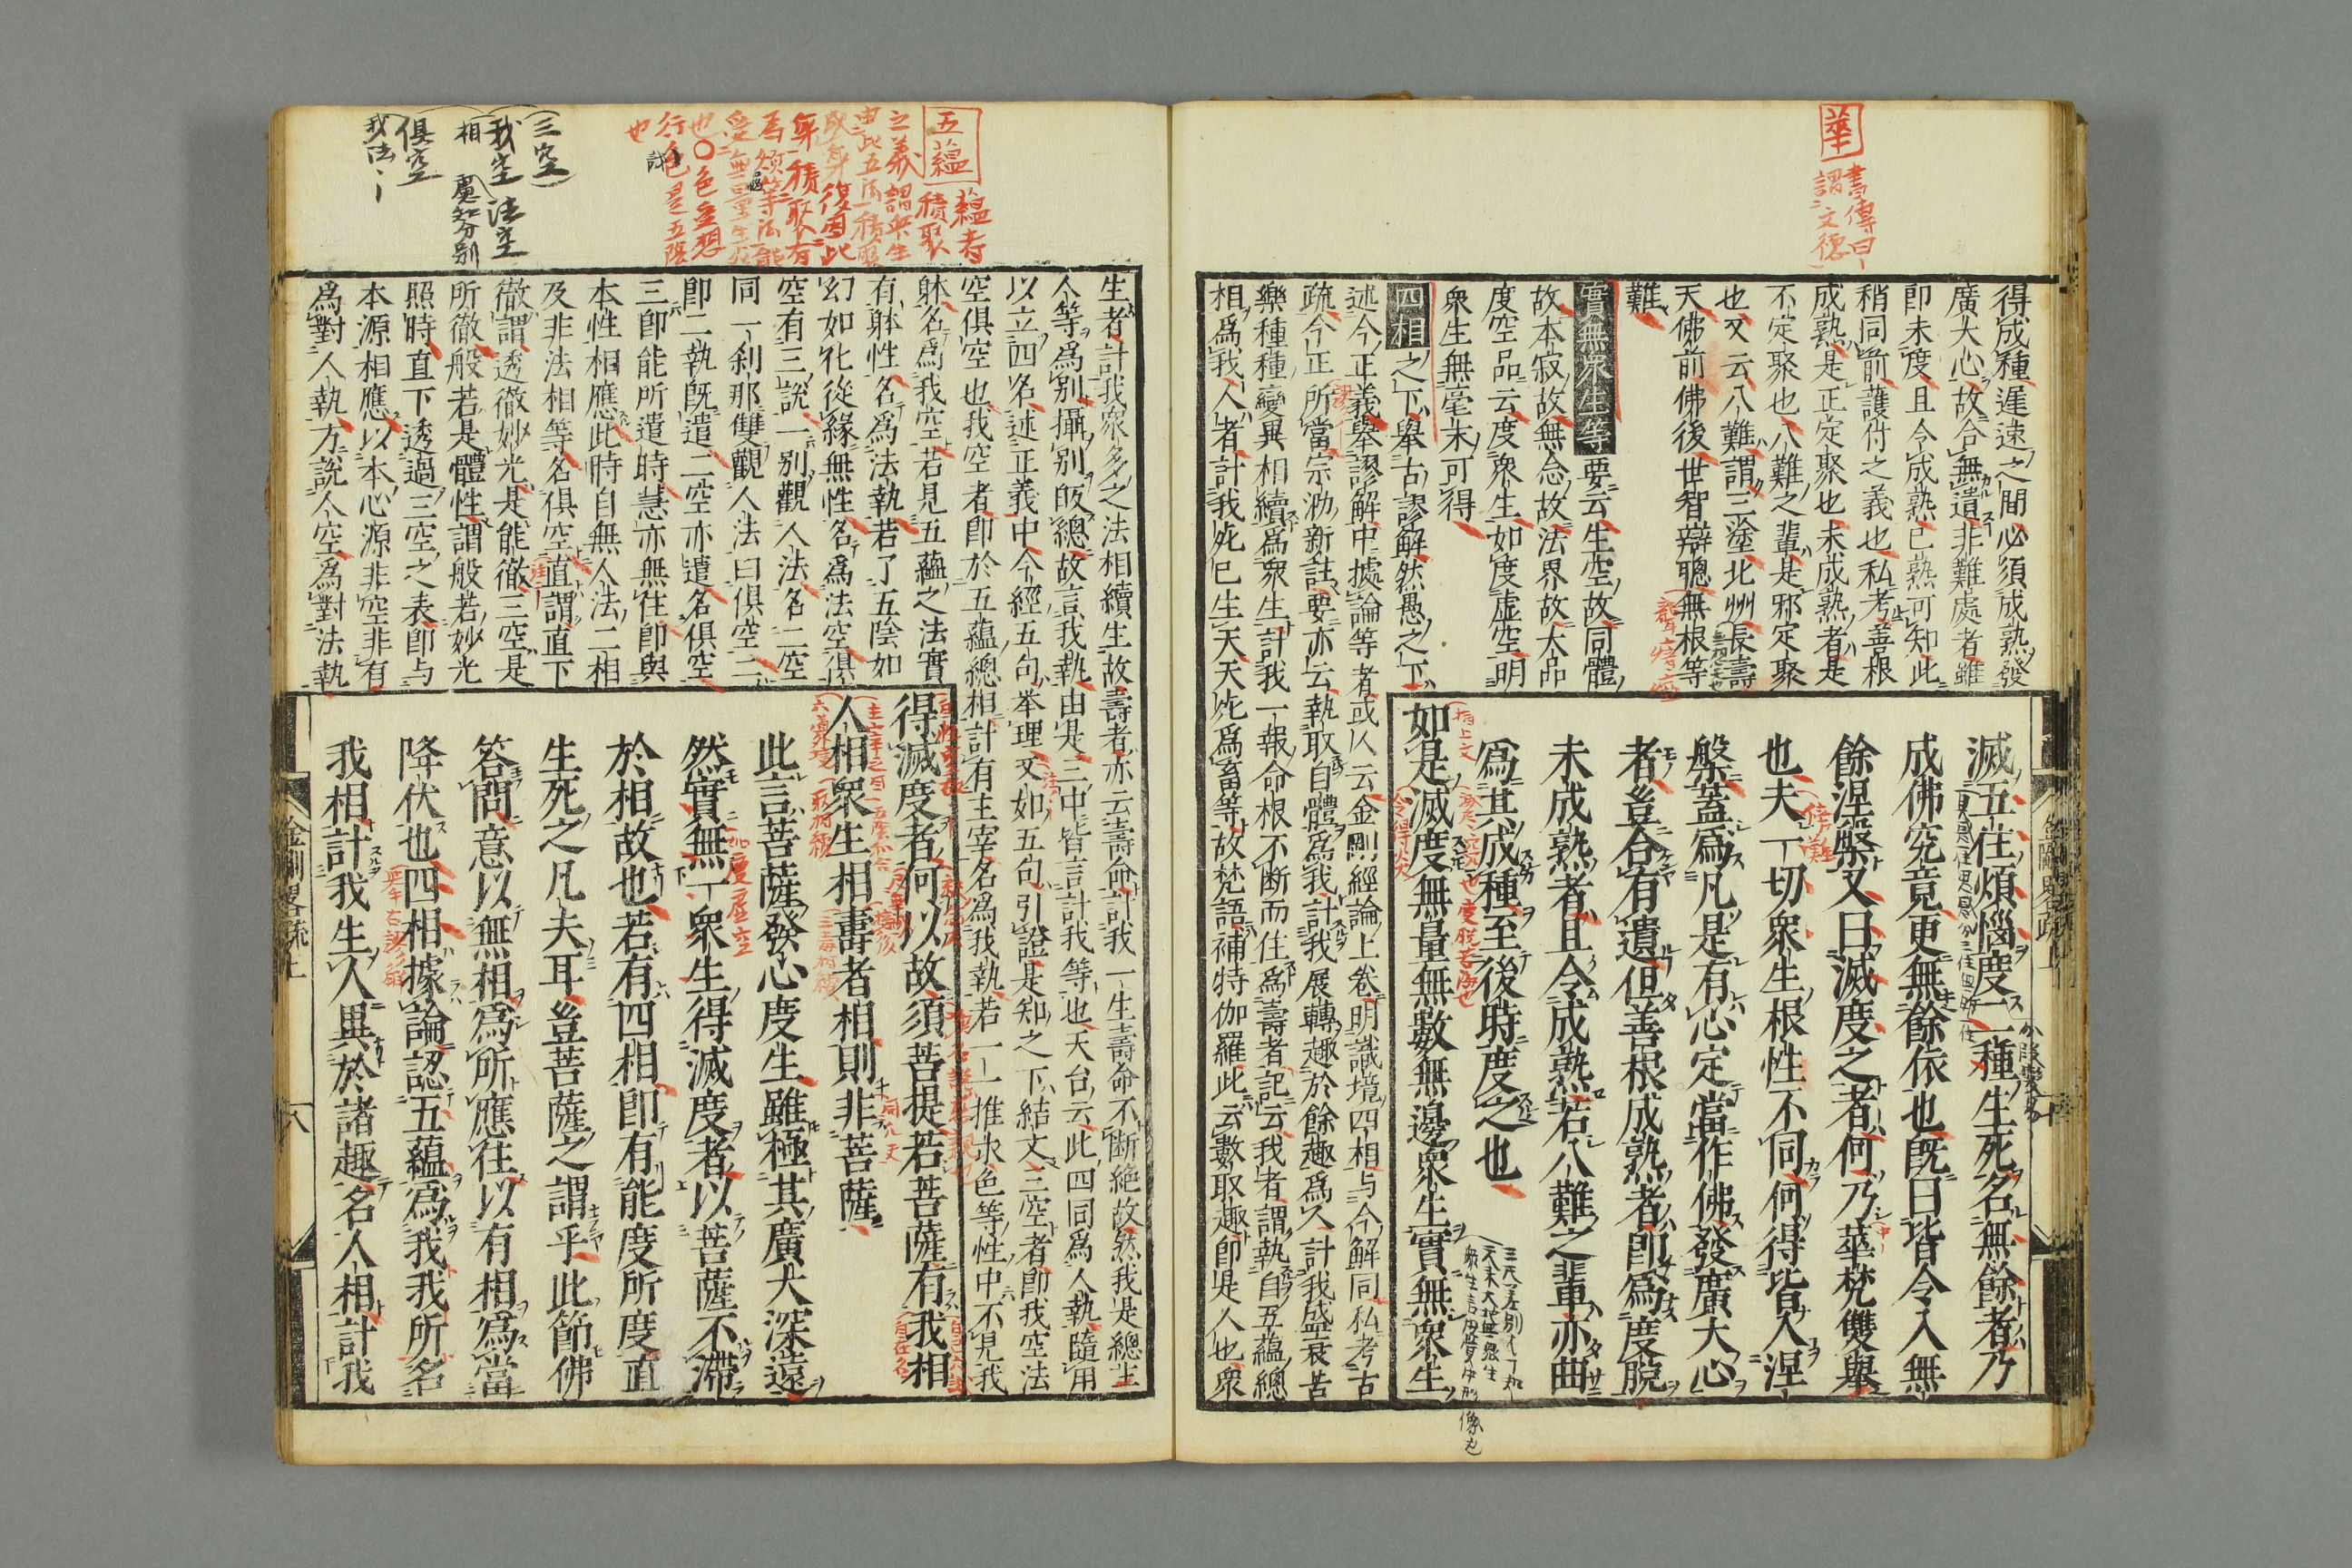 華
書傳曰
謂文德
得成種遲遠之間必須成熟發
廣大心故合無遺非難處者雖
即未度且令成熟已熟可知此
稍同前護付之義也私考善根
成熟是正定聚也未成熟者是
不定聚也八難之輩是邪定聚
也又云八難謂三塗北州長壽
天佛前佛後世智辯聰無根等
難
實無眾生等要云生空故同體
故本寂故無念故法界故大品
度空品云度眾生如度虛空明
眾生無毫末可得
四相之下舉古謬解然愚之下
述今正義舉謬解中據論等者或人云金剛經論上卷明識境四相与今解同私考古
疏今正所當宗泐新註要亦云執取自體為我計我展轉趣於餘趣為人計我盛衰苦
樂種種變異相續為眾生計我一報命根不斷而住為壽者記云我者謂執自五蘊總
相為我人者計我死已生天天死為畜等故梵語補特伽羅此云數取趣即是人也眾
滅五住煩惱度二種生死名無餘者乃
成佛究竟更無餘依也既曰皆令入無
餘涅槃又曰滅度之者何乃華梵雙舉
也夫一切眾生根性不同何得皆入涅
槃蓋為凡是有心定當作佛發廣大心
者豈合有遺但善根成熟者即為度脫
未成熟者且令成熟若八難之輩亦曲
為其成種至後時度之也
如是滅度無量無數無邊眾生實無眾生
五蘊
蘊者
積聚
之義謂眾生
由此五法積聚
成身復因此
身積聚有
為煩等法能
受無量生死
也〇色受想
行識是五陰
也
三空
我空 法空
相 慮智分別
俱空
我法
生者計我眾多之法相續生故壽者亦云壽命計我一生壽命不斷絕故然我是總主
人等為別攝別皈總故言我執由是三中皆言計我等也天台云此四同為人執隨用
以立四名述正義中今經五句举理又如五句引證是知之下結文三空者即我空法
空俱空也我空者即於五蘊總相計有主宰名為我執若一一推求色等性中不見我
躰名為我空若見五蘊之法實
有躰性名為法執若了五陰如
幻如化從緣無性名為法空俱
空有三說一別觀人法名二空
同一刹那雙觀人法曰俱空二
即二執既遣二空亦遣名俱空
三即能所遣時慧亦無住即與
本性相應此時自無人法二相
及非法相等名俱空直謂直下
徹謂透徹妙光是能徹三空是
所徹般若是體性謂般若妙光
照時直下透過三空之表即与
本源相應以本心源非空非有
為對人執方說人空為對法執
得滅度者何以故須菩提若菩薩有我相
人相眾生相壽者相則非菩薩
此言菩薩發心度生雖極其廣大深遠
然實無一眾生得滅度者以菩薩不滯
於相故也若有四相即有能度所度直
生死之凡夫耳豈菩薩之謂乎此節佛
答問意以無相為所應住以有相為當
降伏也四相據論認五蘊為我我所名
我相計我生人異於諸趣名人相計我
金剛畧疏上
八